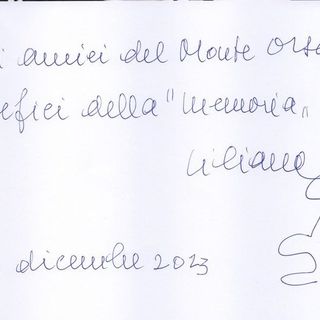 i amici del Monte Orsa
efici della "Memoria"
Liliana
dicembre 2023